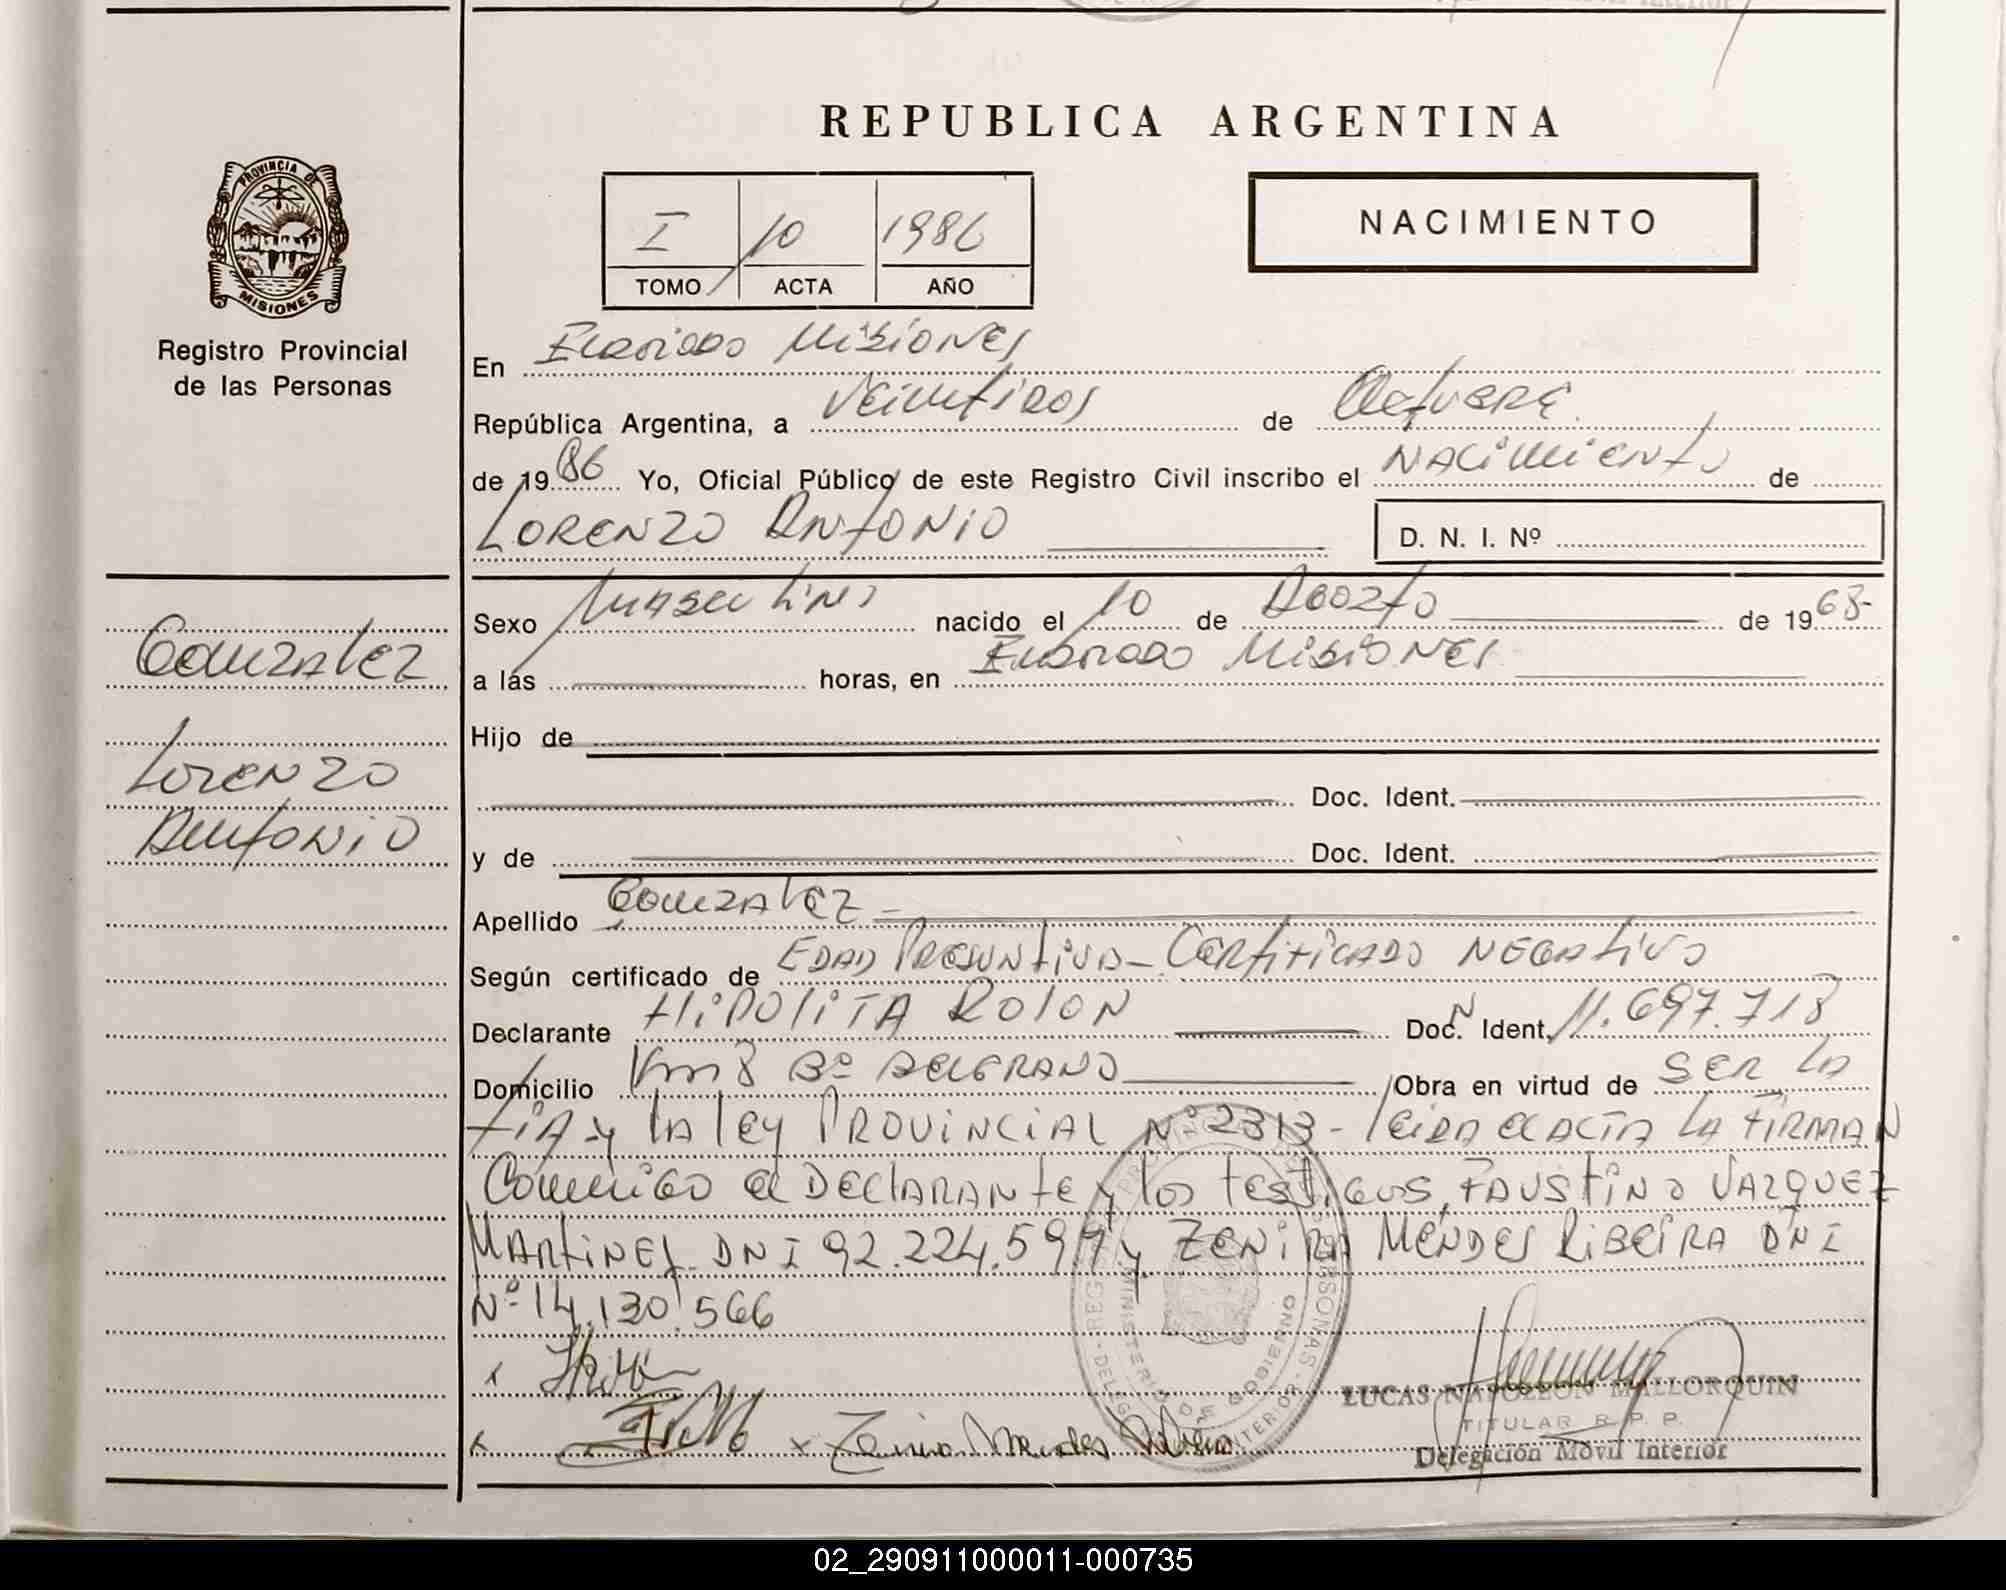 REPUBLICA ARGENTINA
PROVINCIA DE
MISIONES
Registro Provincial
de las Personas
I 10 1986
TOMO ACTA AÑO
NACIMIENTO
En Eldorado Misiones
República Argentina, a Veintidos de Octubre
de 1986 Yo, Oficial Público de este Registro Civil inscribo el NACIMIENTO de
LORENZO ANTONIO D. N. I. Nº
Gonzalez
Lorenzo
Antonio
Sexo Masculino nacido el 10 de Agosto de 1968-
a lás horas, en Eldorado Misiones
Hijo de
Doc. Ident.
y de Doc. Ident.
Apellido Gonzalez -
Según certificado de EDAD PRESUNTIVA - CERTIFICADO NEGATIVO
Declarante HIPOLITA ROLON Doc. Ident. N 11.697.718
Domicilio Km 8 Bº BELGRANO Obra en virtud de SER LA
TIA y LA LEY PROVINCIAL Nº 2313 - leida el ACTA LA FIRMAN
Conmigo el DECLARANTE y los testigos, FAUSTINO VAZQUEZ
MARTINEZ DNI 92.224.599 y ZENIRA MENDES RIBEIRA DNI
Nº 14.130.566
x
x x Zenira Mendes Ribeira
LUCAS NAPOLEON MALLORQUIN
TITULAR R. P. P.
Delegación Móvil Interior
MINISTERIO DE GOBIERNO
02_290911000011-000735